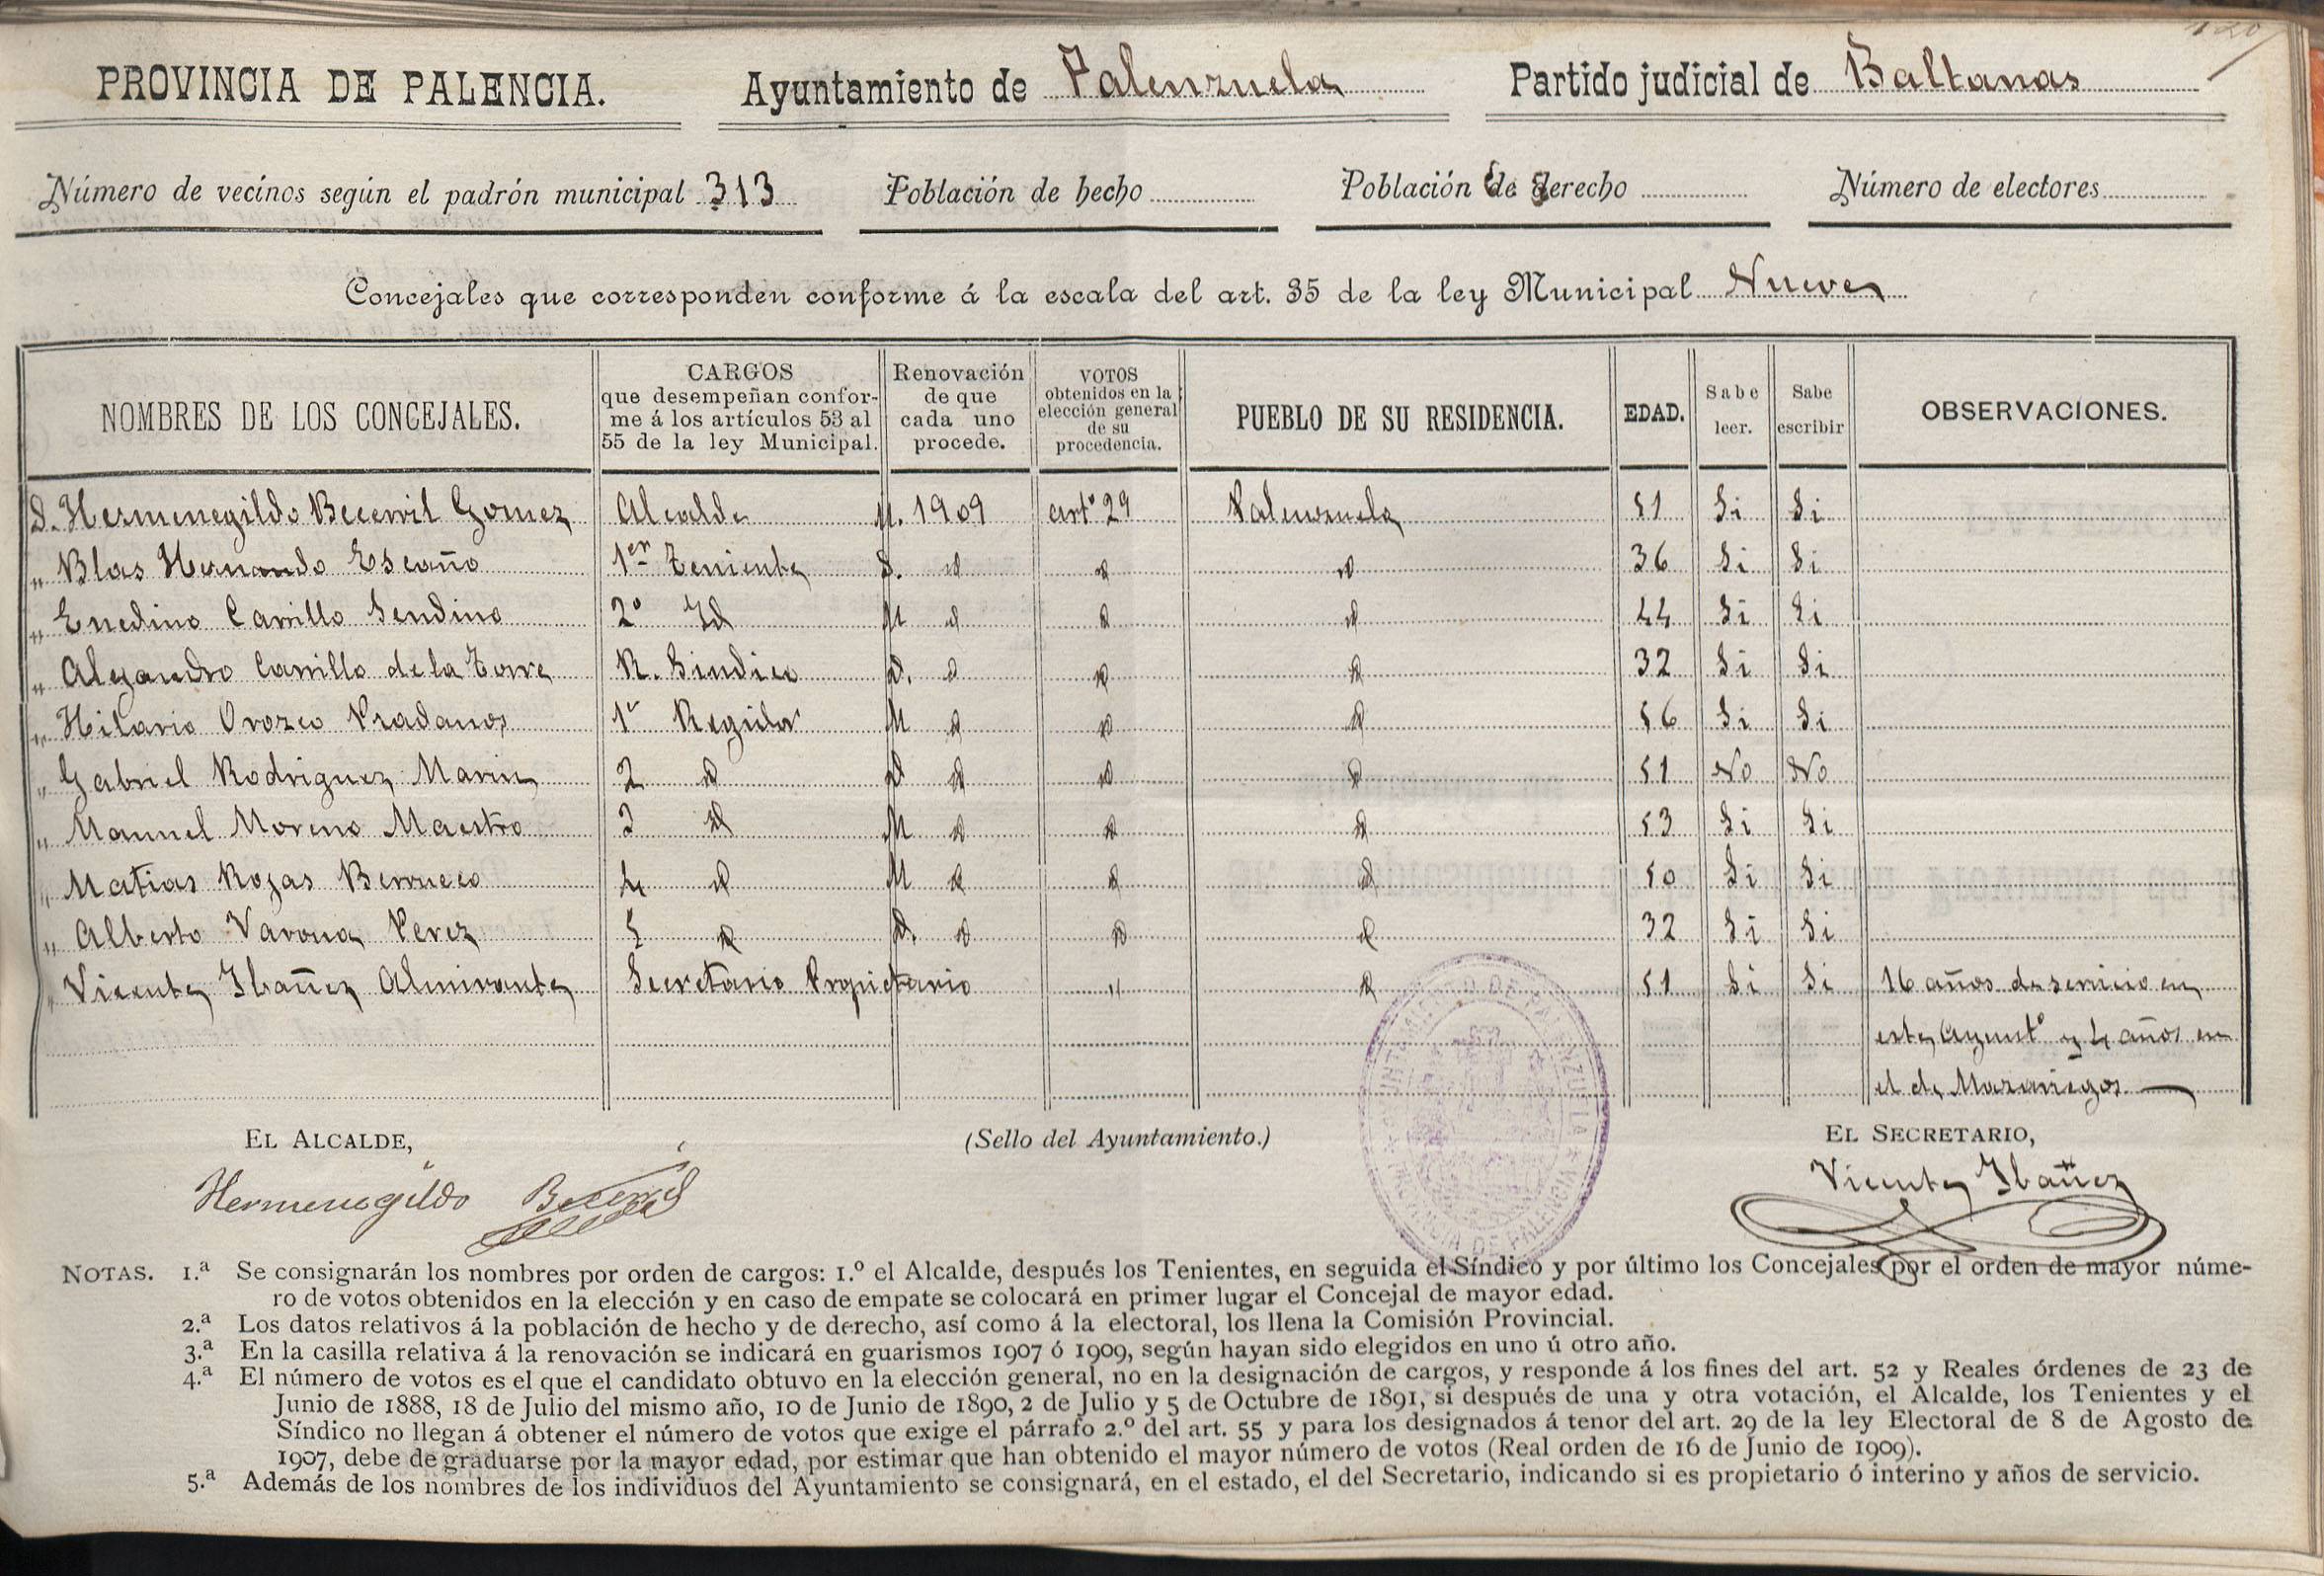 120
PROVINCIA DE PALENCIA. Ayuntamiento de Palenzuela Partido judicial de Baltanas
Número de vecinos según el padrón municipal 313 Población de hecho Población de derecho Número de electores
Concejales que corresponden conforme á la escala del art. 35 de la ley Municipal Nueve
NOMBRES DE LOS CONCEJALES. CARGOS que desempeñan conforme á los artículos 53 al 55 de la ley Municipal. Renovación de que cada uno procede. VOTOS obtenidos en la elección general de su procedencia. PUEBLO DE SU RESIDENCIA. EDAD. Sabe leer. Sabe escribir OBSERVACIONES.
D. Hermenegildo Becerril Gomez Alcalde M. 1909 artº 29 Palenzuela 51 Si Si
" Blas Hernando Escaño 1er Teniente D. id id id 36 Si Si
" Enedino Carrillo Sendino 2º Id M id id id 44 Si Si
" Alejandro Carrillo de la Torre R. Sindico D. id id id 32 Si Si
" Hilario Orozco Pradanos 1r Regidor M id id id 56 Si Si
" Gabriel Rodriguez Marin 2 id D id id id 51 No No
" Manuel Moreno Maestro 3 id M id id id 53 Si Si
" Matias Rojas Berrueco 4 id M id id id 50 Si Si
" Alberto Varona Perez 5 id D. id id id 32 Si Si
" Vicente Ibañez Almirante Secretario Propietario " id 51 Si Si 16 años de servicio en
este Ayuntº y 4 años en
el de Mazariegos
EL ALCALDE, (Sello del Ayuntamiento.) EL SECRETARIO,
Hermenegildo Becerril Vicente Ibañez
AYUNTAMIENTO DE PALENZUELA * PROVINCIA DE PALENCIA *
NOTAS. 1.ª Se consignarán los nombres por orden de cargos: 1.º el Alcalde, después los Tenientes, en seguida el Síndico y por último los Concejales por el orden de mayor núme-
ro de votos obtenidos en la elección y en caso de empate se colocará en primer lugar el Concejal de mayor edad.
2.ª Los datos relativos á la población de hecho y de derecho, así como á la electoral, los llena la Comisión Provincial.
3.ª En la casilla relativa á la renovación se indicará en guarismos 1907 ó 1909, según hayan sido elegidos en uno ú otro año.
4.ª El número de votos es el que el candidato obtuvo en la elección general, no en la designación de cargos, y responde á los fines del art. 52 y Reales órdenes de 23 de
Junio de 1888, 18 de Julio del mismo año, 10 de Junio de 1890, 2 de Julio y 5 de Octubre de 1891, si después de una y otra votación, el Alcalde, los Tenientes y el
Síndico no llegan á obtener el número de votos que exige el párrafo 2.º del art. 55 y para los designados á tenor del art. 29 de la ley Electoral de 8 de Agosto de
1907, debe de graduarse por la mayor edad, por estimar que han obtenido el mayor número de votos (Real orden de 16 de Junio de 1909).
5.ª Además de los nombres de los individuos del Ayuntamiento se consignará, en el estado, el del Secretario, indicando si es propietario ó interino y años de servicio.